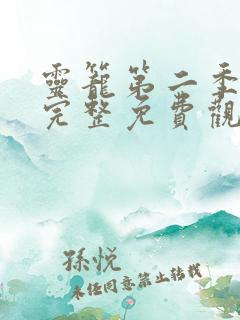 靈籠第二季
完整免費觀
孫悅
未经同意禁止转载